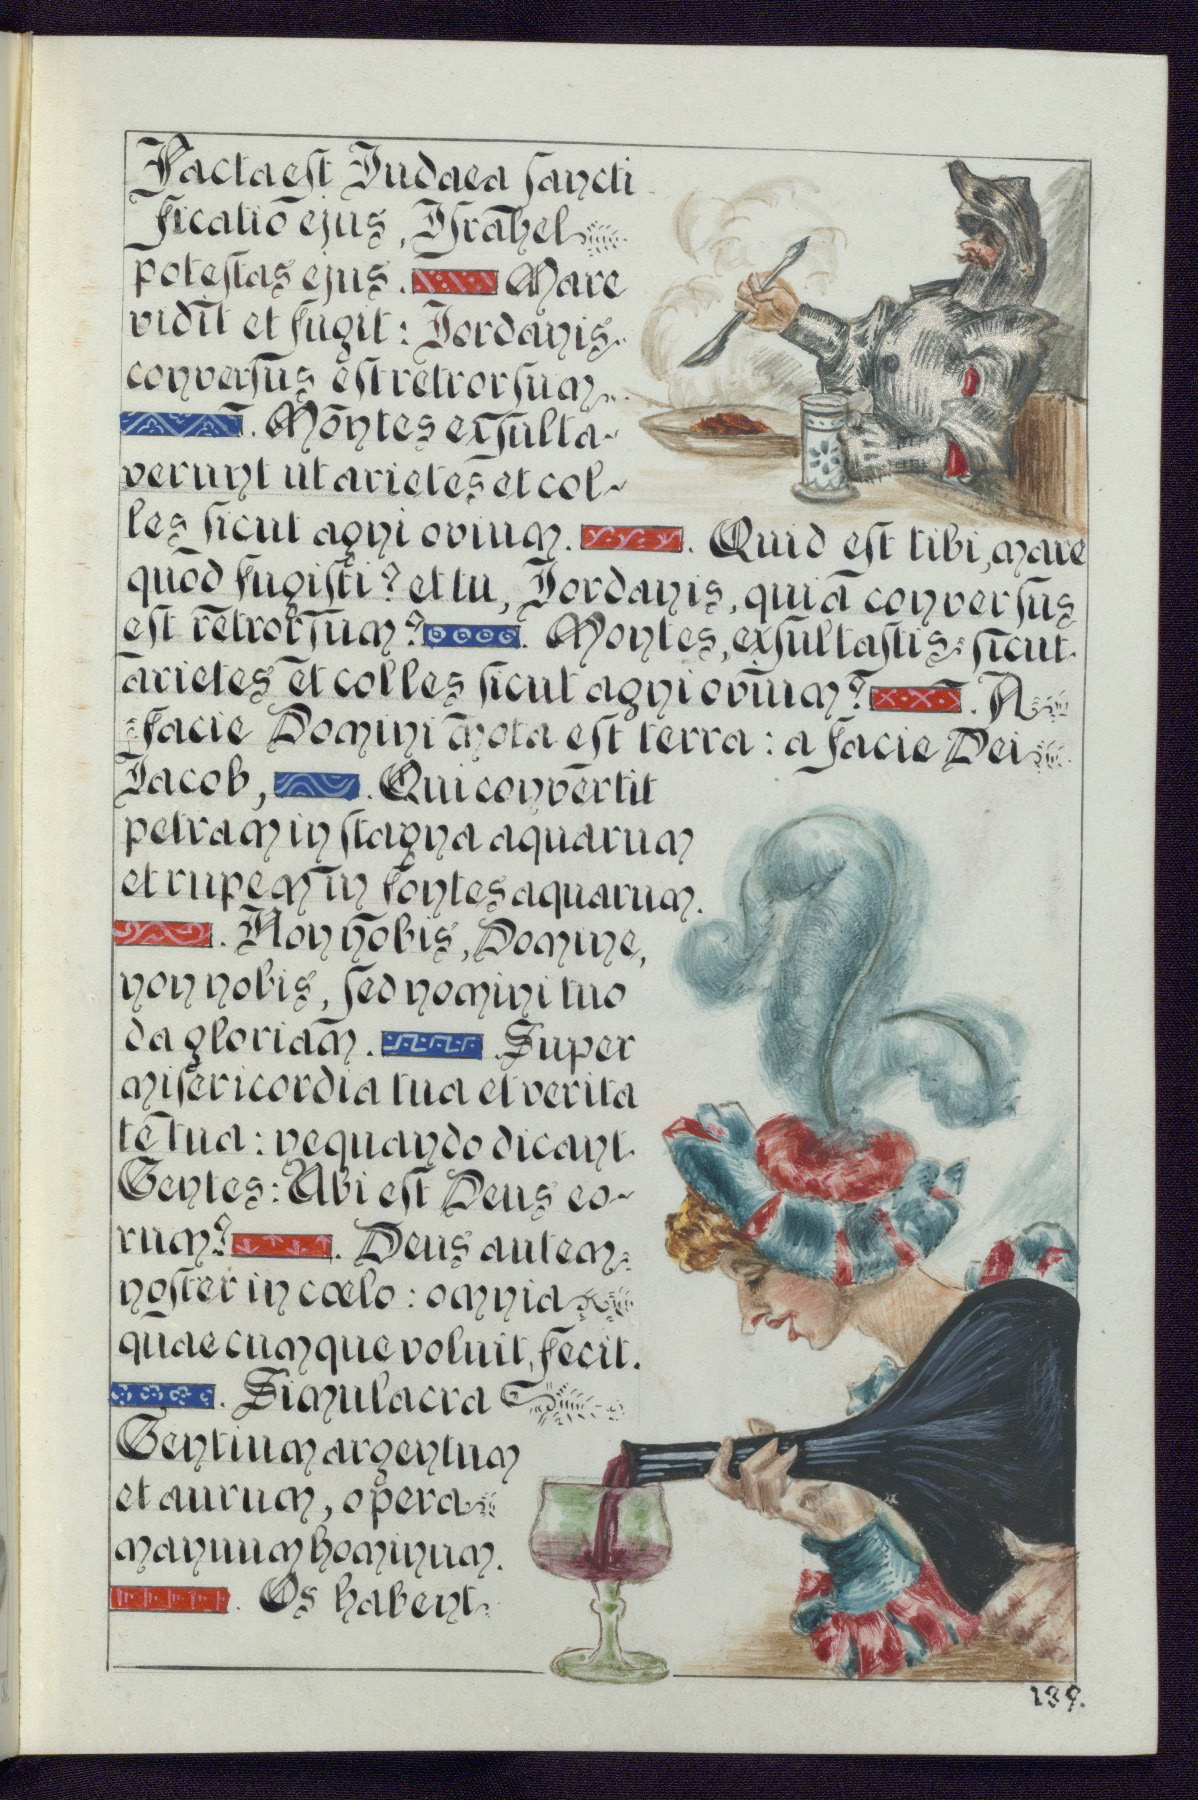 Facta est Judaea sancti
ficatiō ejus, Jsrahel
potestas ejus. Mare
vidit et fugit: Jordanis
conversus est retrorsum
. Montes exsulta~
verunt ut arietes et col~
les sicut agni ovium. . Quid est tibi, mare
quod fugisti? et tu, Jordanis, quia conversus
est retrorsum? . Montes, exsultastis sicut
arietes et colles sicut agni ovium? . A
facie Domini mota est terra: a facie Dei
Jacob, . Qui convertit
petram in stagna aquarum
et rupem in fontes aquarum.
. Non nobis, Domine,
non nobis, sed nomini tuo
da gloriam. . Super
misericordia tua et verita
te tua: nequando dicant
Gentes: Ubi est Deus eo~
rum? . Deus autem
noster in cœlo: omnia
quaecumque voluit, fecit.
. Simulacra
Gentium argentum
et aurum, opera
manuum hominum.
. Os habent
139.